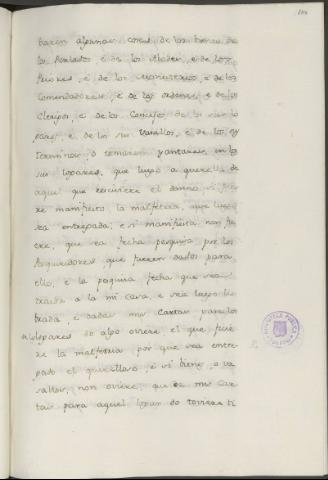 baren algunas cosas de los bienes de
los Perlados e de los Abades, e de los
Priores, e de los Monesterios, e de los
Comendadores, e de las ordenes, e de los
Clerigos, e de los Concejos de los sus lo
gares, e de los sus Vasallos, e de los sus
Terminos, o tomaren yantares en los
sus logares, que luego a querella de
aquel que resciviere el danno si fue
re manifiesto la malfetria, que luego
sea entregada, e si manifiesta non fu
ere, que sea fecha pesquisa por los
Pesquiridores que fueren dados para
ello, e la pesquisa fecha que sea
traida a la mi casa, e sea luego li
brada, e dadas mis Cartas para los
logares do algo oviere el que ficie
re la malfetria por que sea entre
gado el querelloso, e si bienes o va
sallos, non oviere, que de mis Car
tas para aquel logar do toviere ti